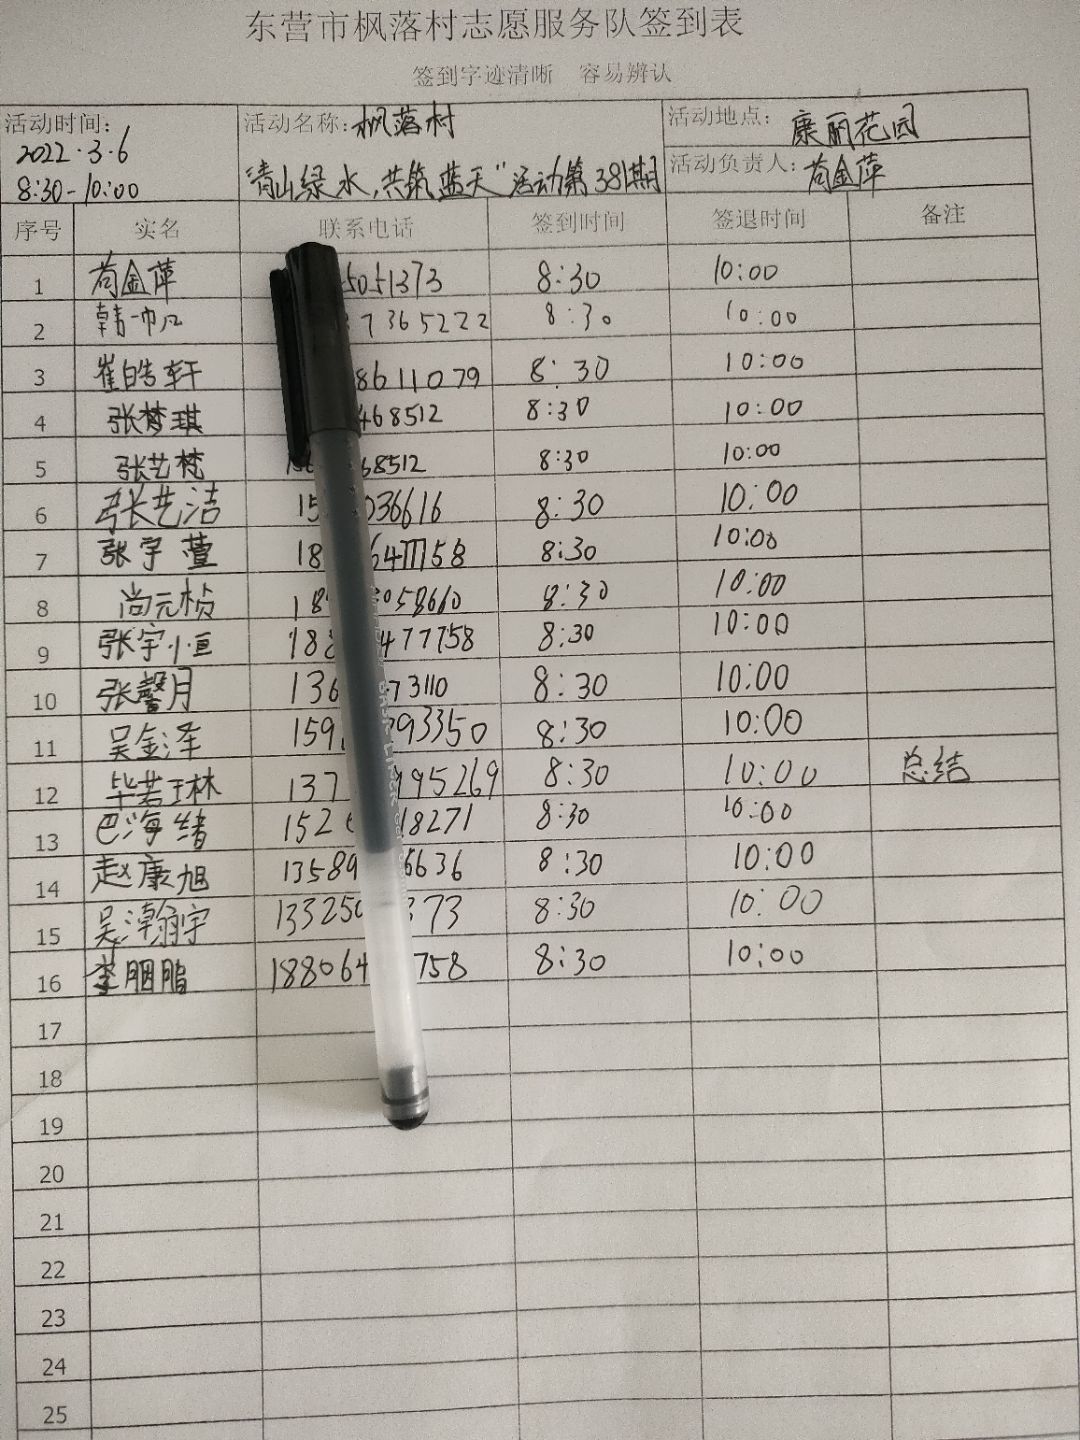 东营市枫落村志愿服务队签到表
签到字迹清晰 容易辨认
活动时间: 2022.3.6 8:30-10:00
活动名称: 枫落村 "青山绿水,共筑蓝天"活动第381期
活动地点: 康丽花园
活动负责人: 苟金萍
序号 实名 联系电话 签到时间 签退时间 备注
1 苟金萍 5051373 8:30 10:00
2 韩一凡 7365222 8:30 10:00
3 崔皓轩 8611079 8:30 10:00
4 张梦琪 468512 8:30 10:00
5 张艺梵 68512 8:30 10:00
6 张艺洁 15 036616 8:30 10:00
7 张宇萱 18 6477758 8:30 10:00
8 尚元桢 18 058660 8:30 10:00
9 张宇恒 188 477758 8:30 10:00
10 张馨月 136 73110 8:30 10:00
11 吴金泽 159 93350 8:30 10:00
12 毕若琳 137 195269 8:30 10:00 总结
13 巴海绪 152 18271 8:30 10:00
14 赵康旭 13589 6636 8:30 10:00
15 吴瀚宇 133250 373 8:30 10:00
16 李胭脂 188064 758 8:30 10:00
17
18
19
20
21
22
23
24
25